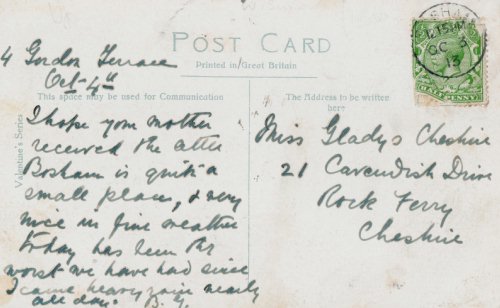 4 Gordon Terrace
Oct. 4th
POST CARD
Printed in Great Britain
This space may be used for Communication
The Address to be written
here
Valentine's Series
I hope your mother
received the
Bosham is quite a
small place, & very
nice in fine weather
today has been the
worst we have had since
I came heavy rain nearly
all day.
Miss Gladys Cheshire
21 Cavendish Drive
Rock Ferry
Cheshire
HALFPENNY
OC
13